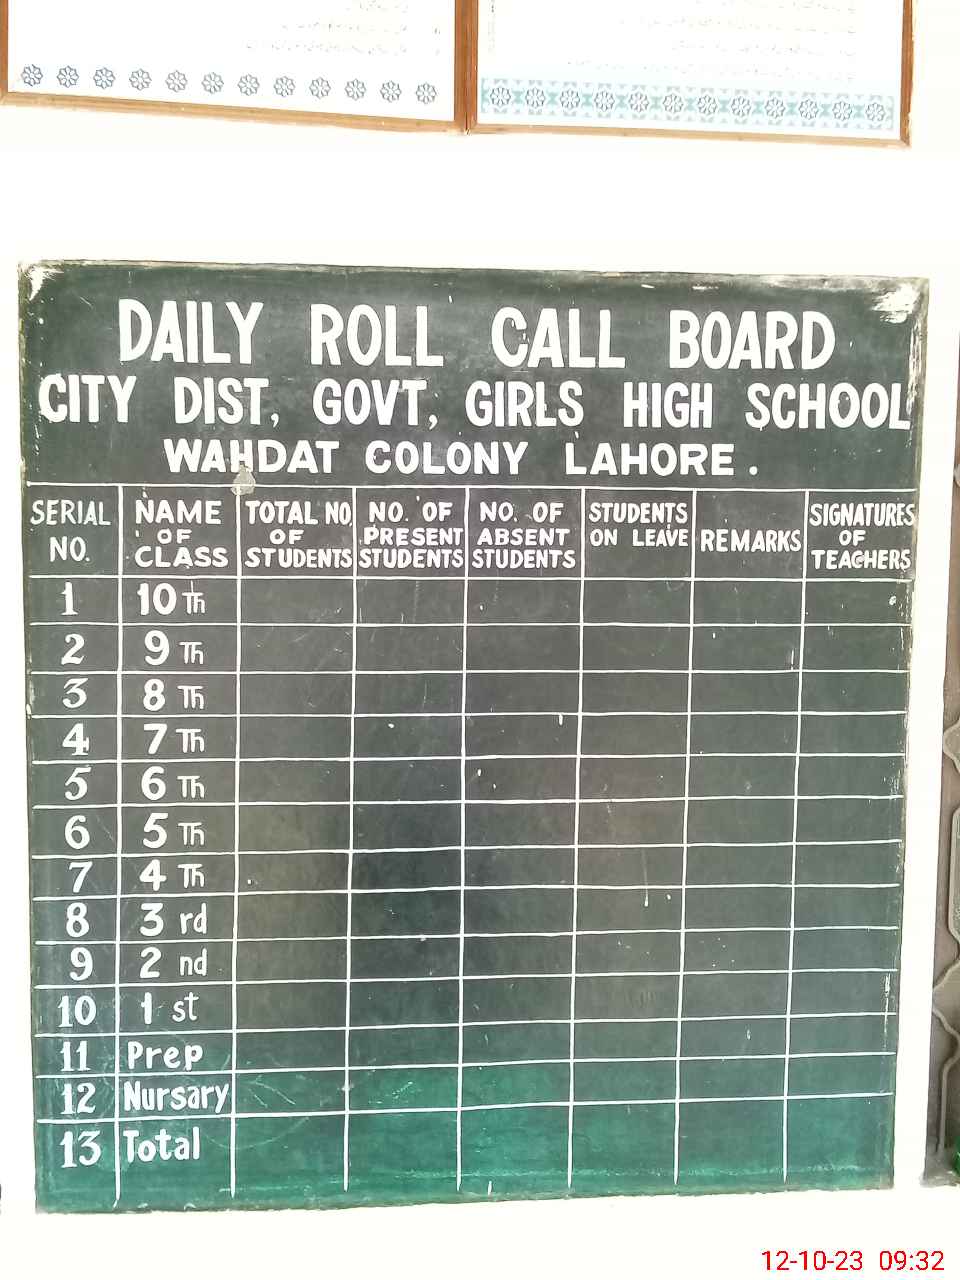 DAILY ROLL CALL BOARD
CITY DIST, GOVT, GIRLS HIGH SCHOOL
WAHDAT COLONY LAHORE .
SERIAL NO. NAME OF CLASS TOTAL NO OF STUDENTS NO. OF PRESENT STUDENTS NO. OF ABSENT STUDENTS STUDENTS ON LEAVE REMARKS SIGNATURES OF TEACHERS
1 10 Th
2 9 Th
3 8 Th
4 7 Th
5 6 Th
6 5 Th
7 4 Th
8 3 rd
9 2 nd
10 1 st
11 Prep
12 Nursary
13 Total
12-10-23 09:32